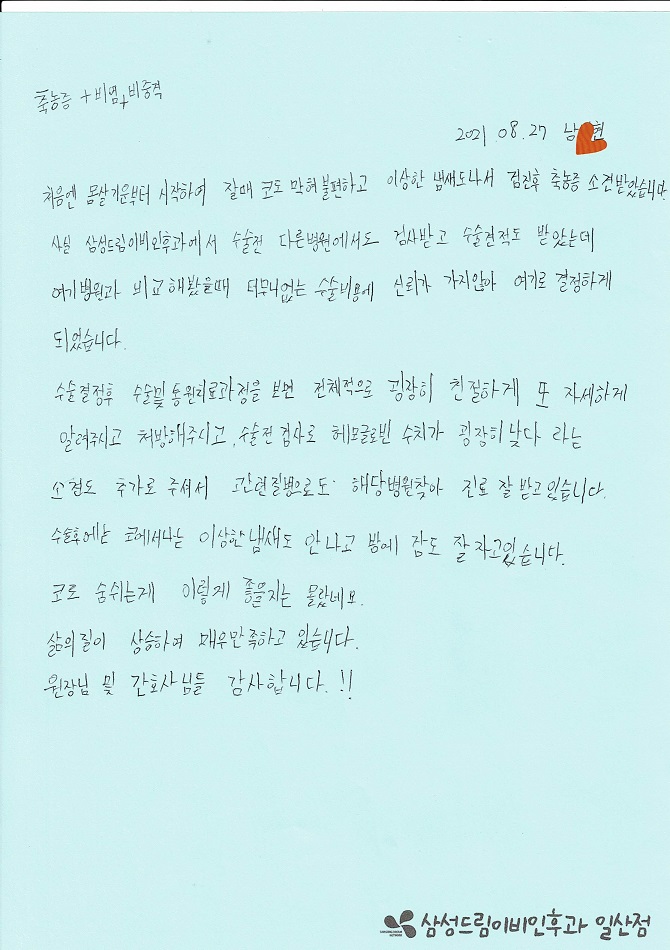 축농증 + 비염 + 비중격
2021.08.27 남 현
처음엔 몸살기운부터 시작하여 잘때 코도 막혀 불편하고 이상한 냄새도나서 검진후 축농증 소견받았습니다.
사실 삼성드림이비인후과에서 수술전 다른병원에서도 검사받고 수술견적도 받았는데
여기병원과 비교해봤을때 터무니없는 수술비용에 신뢰가 가지않아 여기로 결정하게
되었습니다.
수술결정후 수술및 통원치료과정을 보면 전체적으로 굉장히 친절하게 또 자세하게
알려주시고 처방해주시고, 수술전 검사로 헤모글로빈 수치가 굉장히낮다 라는
소견도 추가로 주셔서 그관련질병으로도 해당병원찾아 진료 잘 받고있습니다.
수술후에는 코에서나는 이상한냄새도 안나고 밤에 잠도 잘자고있습니다.
코로 숨쉬는게 이렇게 좋을지는 몰랐네요.
삶의질이 상승하여 매우만족하고 있습니다.
원장님 및 간호사님들 감사합니다.!!
삼성드림이비인후과 일산점